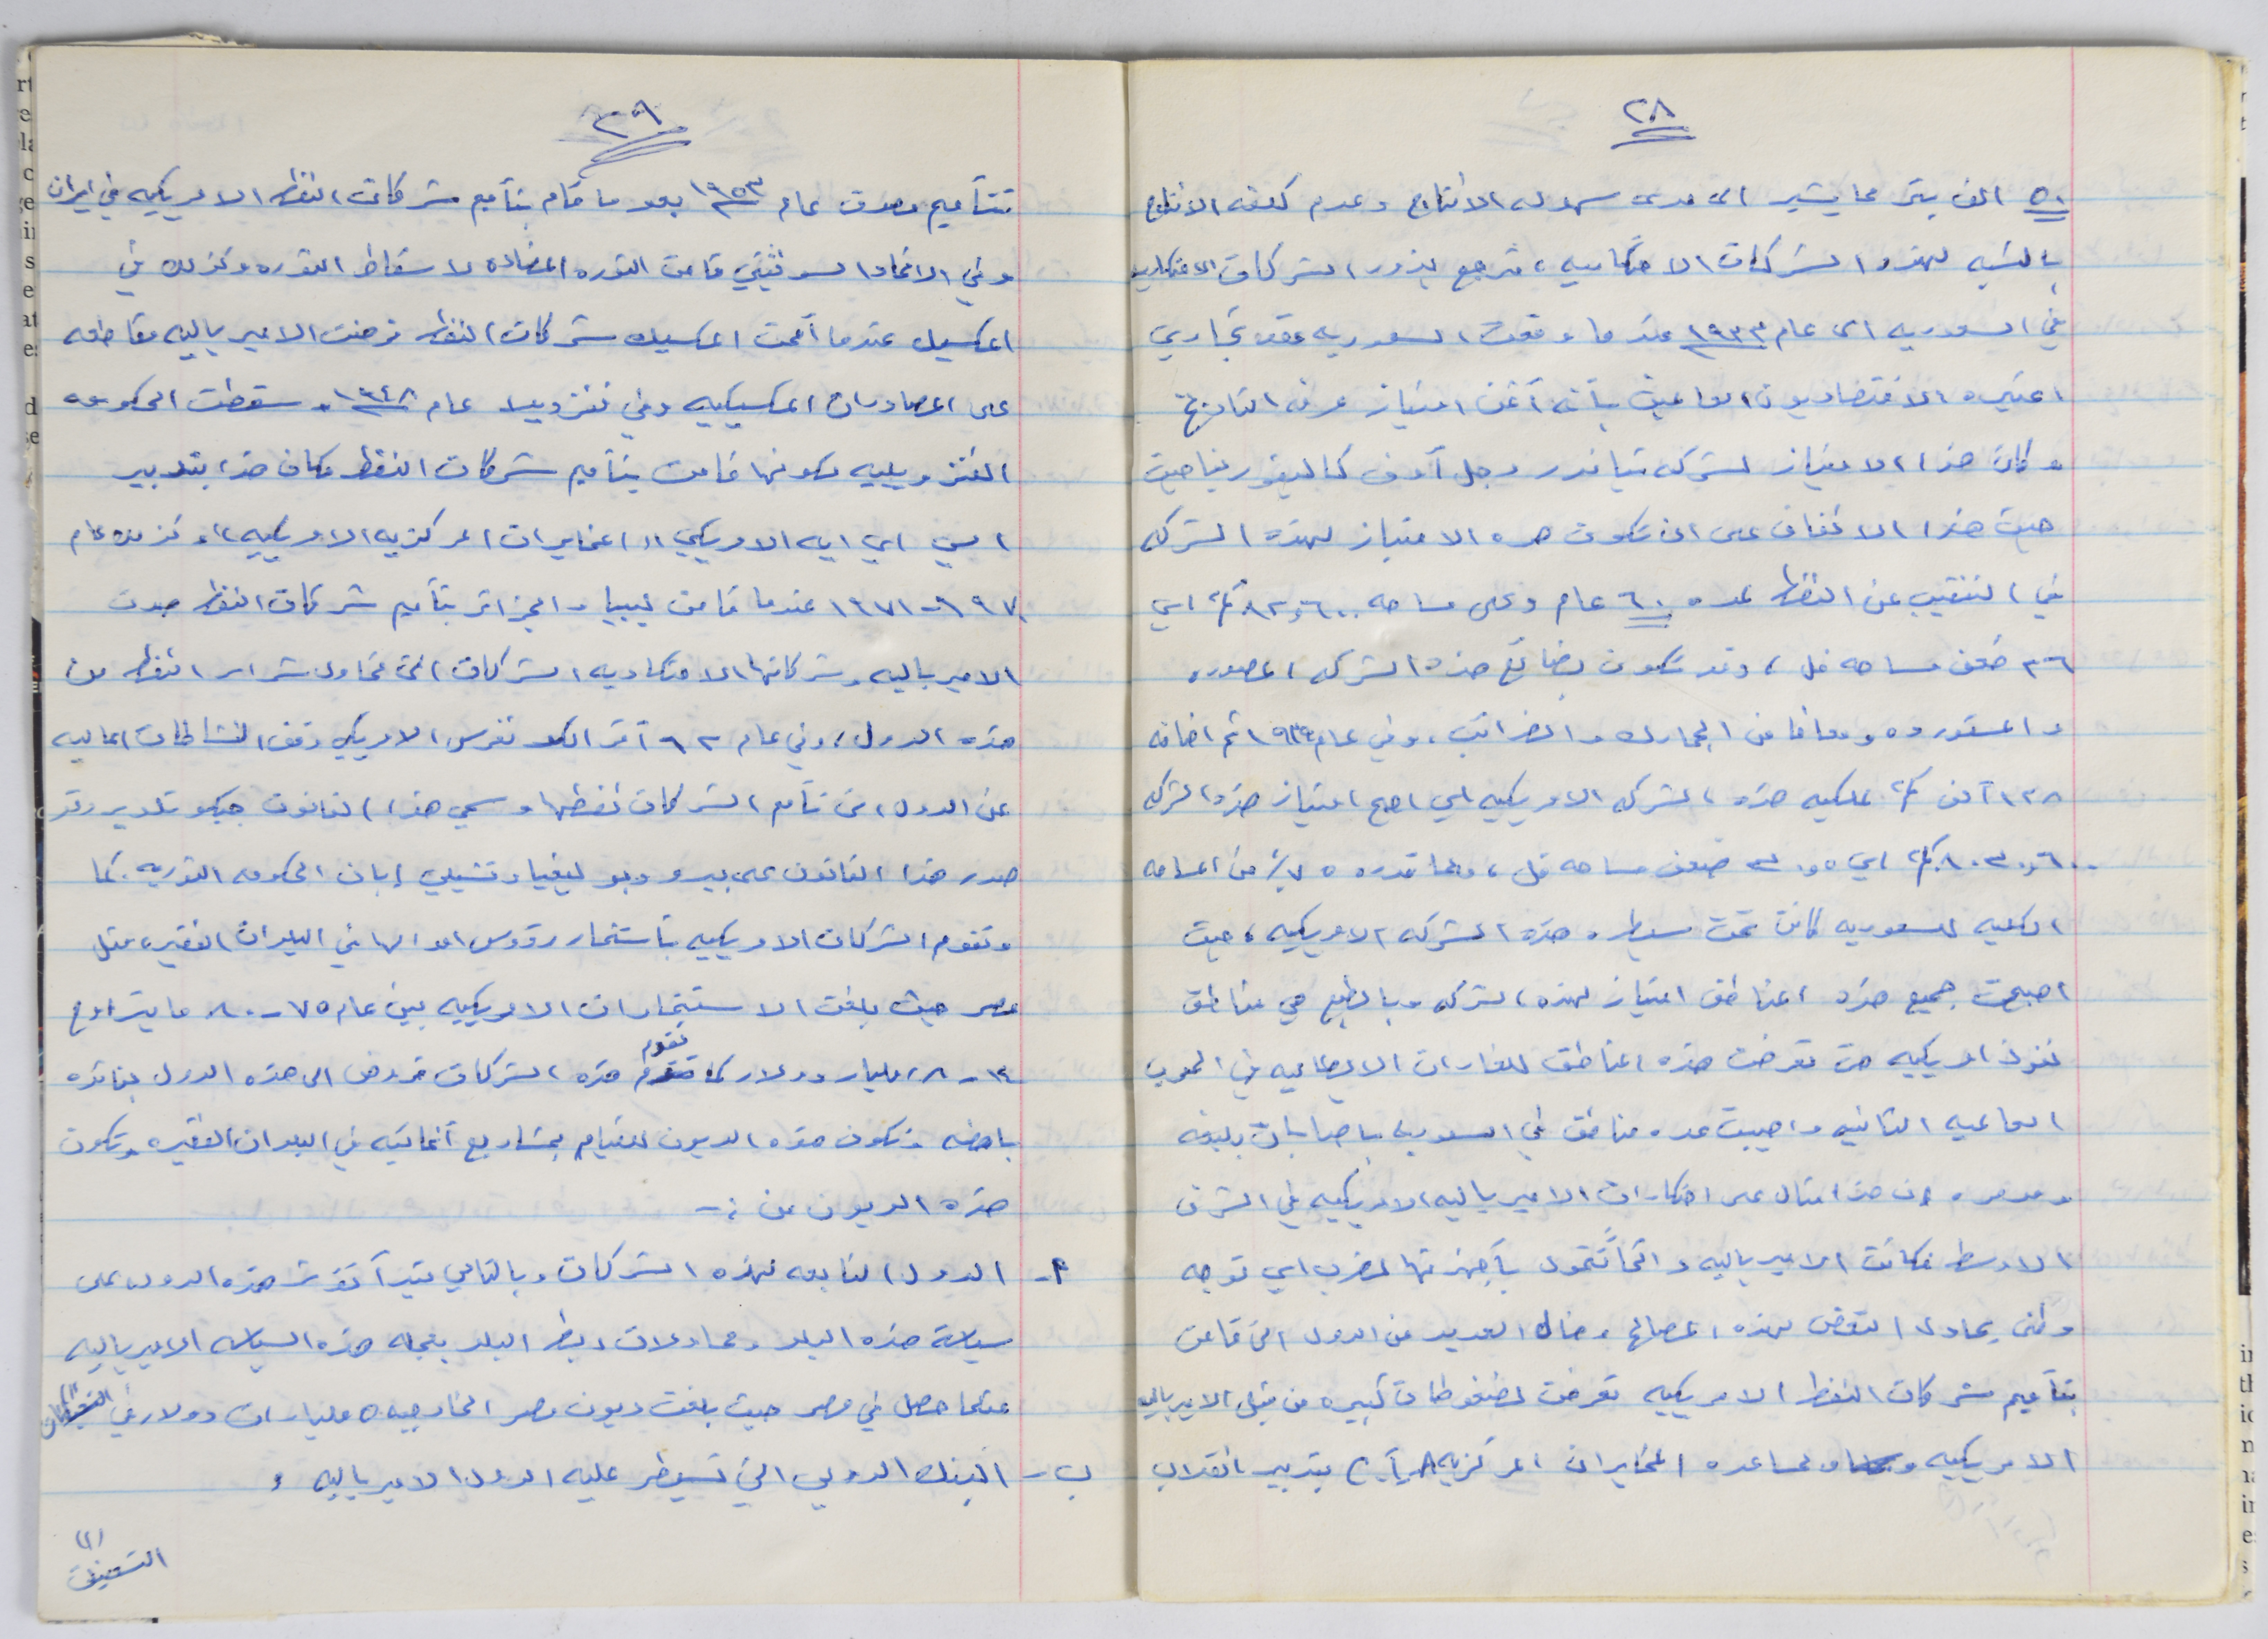 ٢٨
٥٠ الف بئر مما يشير الى مدى سهوله الانتاج وعدم كلفه الانتاج
بالنسبه لهذه الشركات الاحتكاريه ، ترجع جذور الشركات الاحتكاريه
في السعوديه الى عام ١٩٣٣ عندما وقعت السعوديه عقد تجاري
اعتبره الاقتصاديون العالمين بأنه أثمن امتياز عرفه التاريخ
وكان هذا الامتياز لشركه ستاندرد اويل أوف كاليفورنيا حيث
حيث هذا الاتفاق على ان تكون مده الامتياز لهذه الشركه
في التنقيب عن النفط لمده ٦٠ عام وعلى مساحه كم٢ اي
٣٦ ضعف مساحه فل ، وقد تكون بضائع هذه الشركه المصدره
والمستورده ومعافا من الجمارك والضرائب ، وفي عام ١٩٣٩ تم اضافه
١٣٨ آلف كم٢ لملكيه هذه الشركه الامريكيه اي اصبح امتياز هذه الشركه
كم٢ اي ضعف مساحه فل ، وما قدره ٧٥٪ من المساحه
الكليه للسعوديه كانت تحت سيطره هذه الشركه الامريكيه ، حيث
اصبحت جميع هذه المناطق امتياز لهذه الشركه وبالطبع هي مناطق
نفوذ امريكيه حتى تعرضت هذه المناطق للغارات الايطاليه في الحرب
العالميه الثانيه واصيبت عده مناطق في السعوديه باصابات بليغه
ومدمره ان هذا مثال على احتكارات الامبرياليه الامريكيه في الشرق
الاوسط فكانت الامبرياليه دائماً تتحول بأجهزتها لضرب اي توجه
وطني يحاول التعرض لهذه المصالح ، هناك العديد من الدول التي قامت
بتأميم شركات النفط الامريكيه تعرضت لضغوطات كبيره من قبل الامبرياليه
الامريكيه وبمساعده المخابرات المركزيه بتدبير انقلاب
٢٩
تتأميم مصدق عام ١٩٥٣ بعد ما قام بتأميم شركات النفط الامريكيه في ايران
وفي الاتحاد السوفيتي قامت الثوره المضاده لاسقاط الثوره وكذلك في
المكسيك عندما آممت المكسيك شركات النفط فرضت الامبرياليه مقاطعه
على الصادرات المكسيكيه وفي فنزويلا عام ١٩٤٨ ، سقطت الحكومه
الفنزويليه كونها قامت بتأميم شركات النفط فكان هذا بتدبير
السي اي ايه الامريكي او المخابرات المركزيه الامريكيه ، وكذلك عام
١٩٧٠ - ١٩٧١ عندما قامت ليبيا والجزائر بتأميم شركات النفط
الامبرياليه وشركاتها الاحتكاريه الشركات التي تحاول شراء النفط من
هذه الدول ، وفي عام ٦٢ آقر الكونغرس الامريكي وقف النشاطات الماليه
عن الدول التي تآمم الشركات نفطها وسمي هذا القانون وقد
صدر هذا القانون على بيرو وبوليفيا وتشيلي إبان الحكومه الثوريه . كما
وتقوم الشركات الامريكيه بآستثمار رؤوس اموالها في البلدان الفقيره مثل
مصر حيث بلغت الاستثمارات الامريكيه بين عام ٧٥ - ٨٠ ما يتراوح
مليار دولار كما تقوم هذه الشركات قروض الى هذه الدول بفائده
باهضه وتكون هذه الديون للقيام بمشاريع آنمائيه في البلدان الفقيره وتكون
هذه الديون من :-
أ- الدول التابعه لهذه الشركات وبالتالي يتبدأ تؤثر هذه الدول على
سياسة هذه البلد ومحاولات ربط البلد بعجله هذه السياسه الامبرياليه
مثلما حصل في مصر حيث بلغت ديون مصر الخارجيه ٥ مليارات دولار في
ب- البنك الدولي التي تسيطر عليه الدول الامبرياليه و
(١)